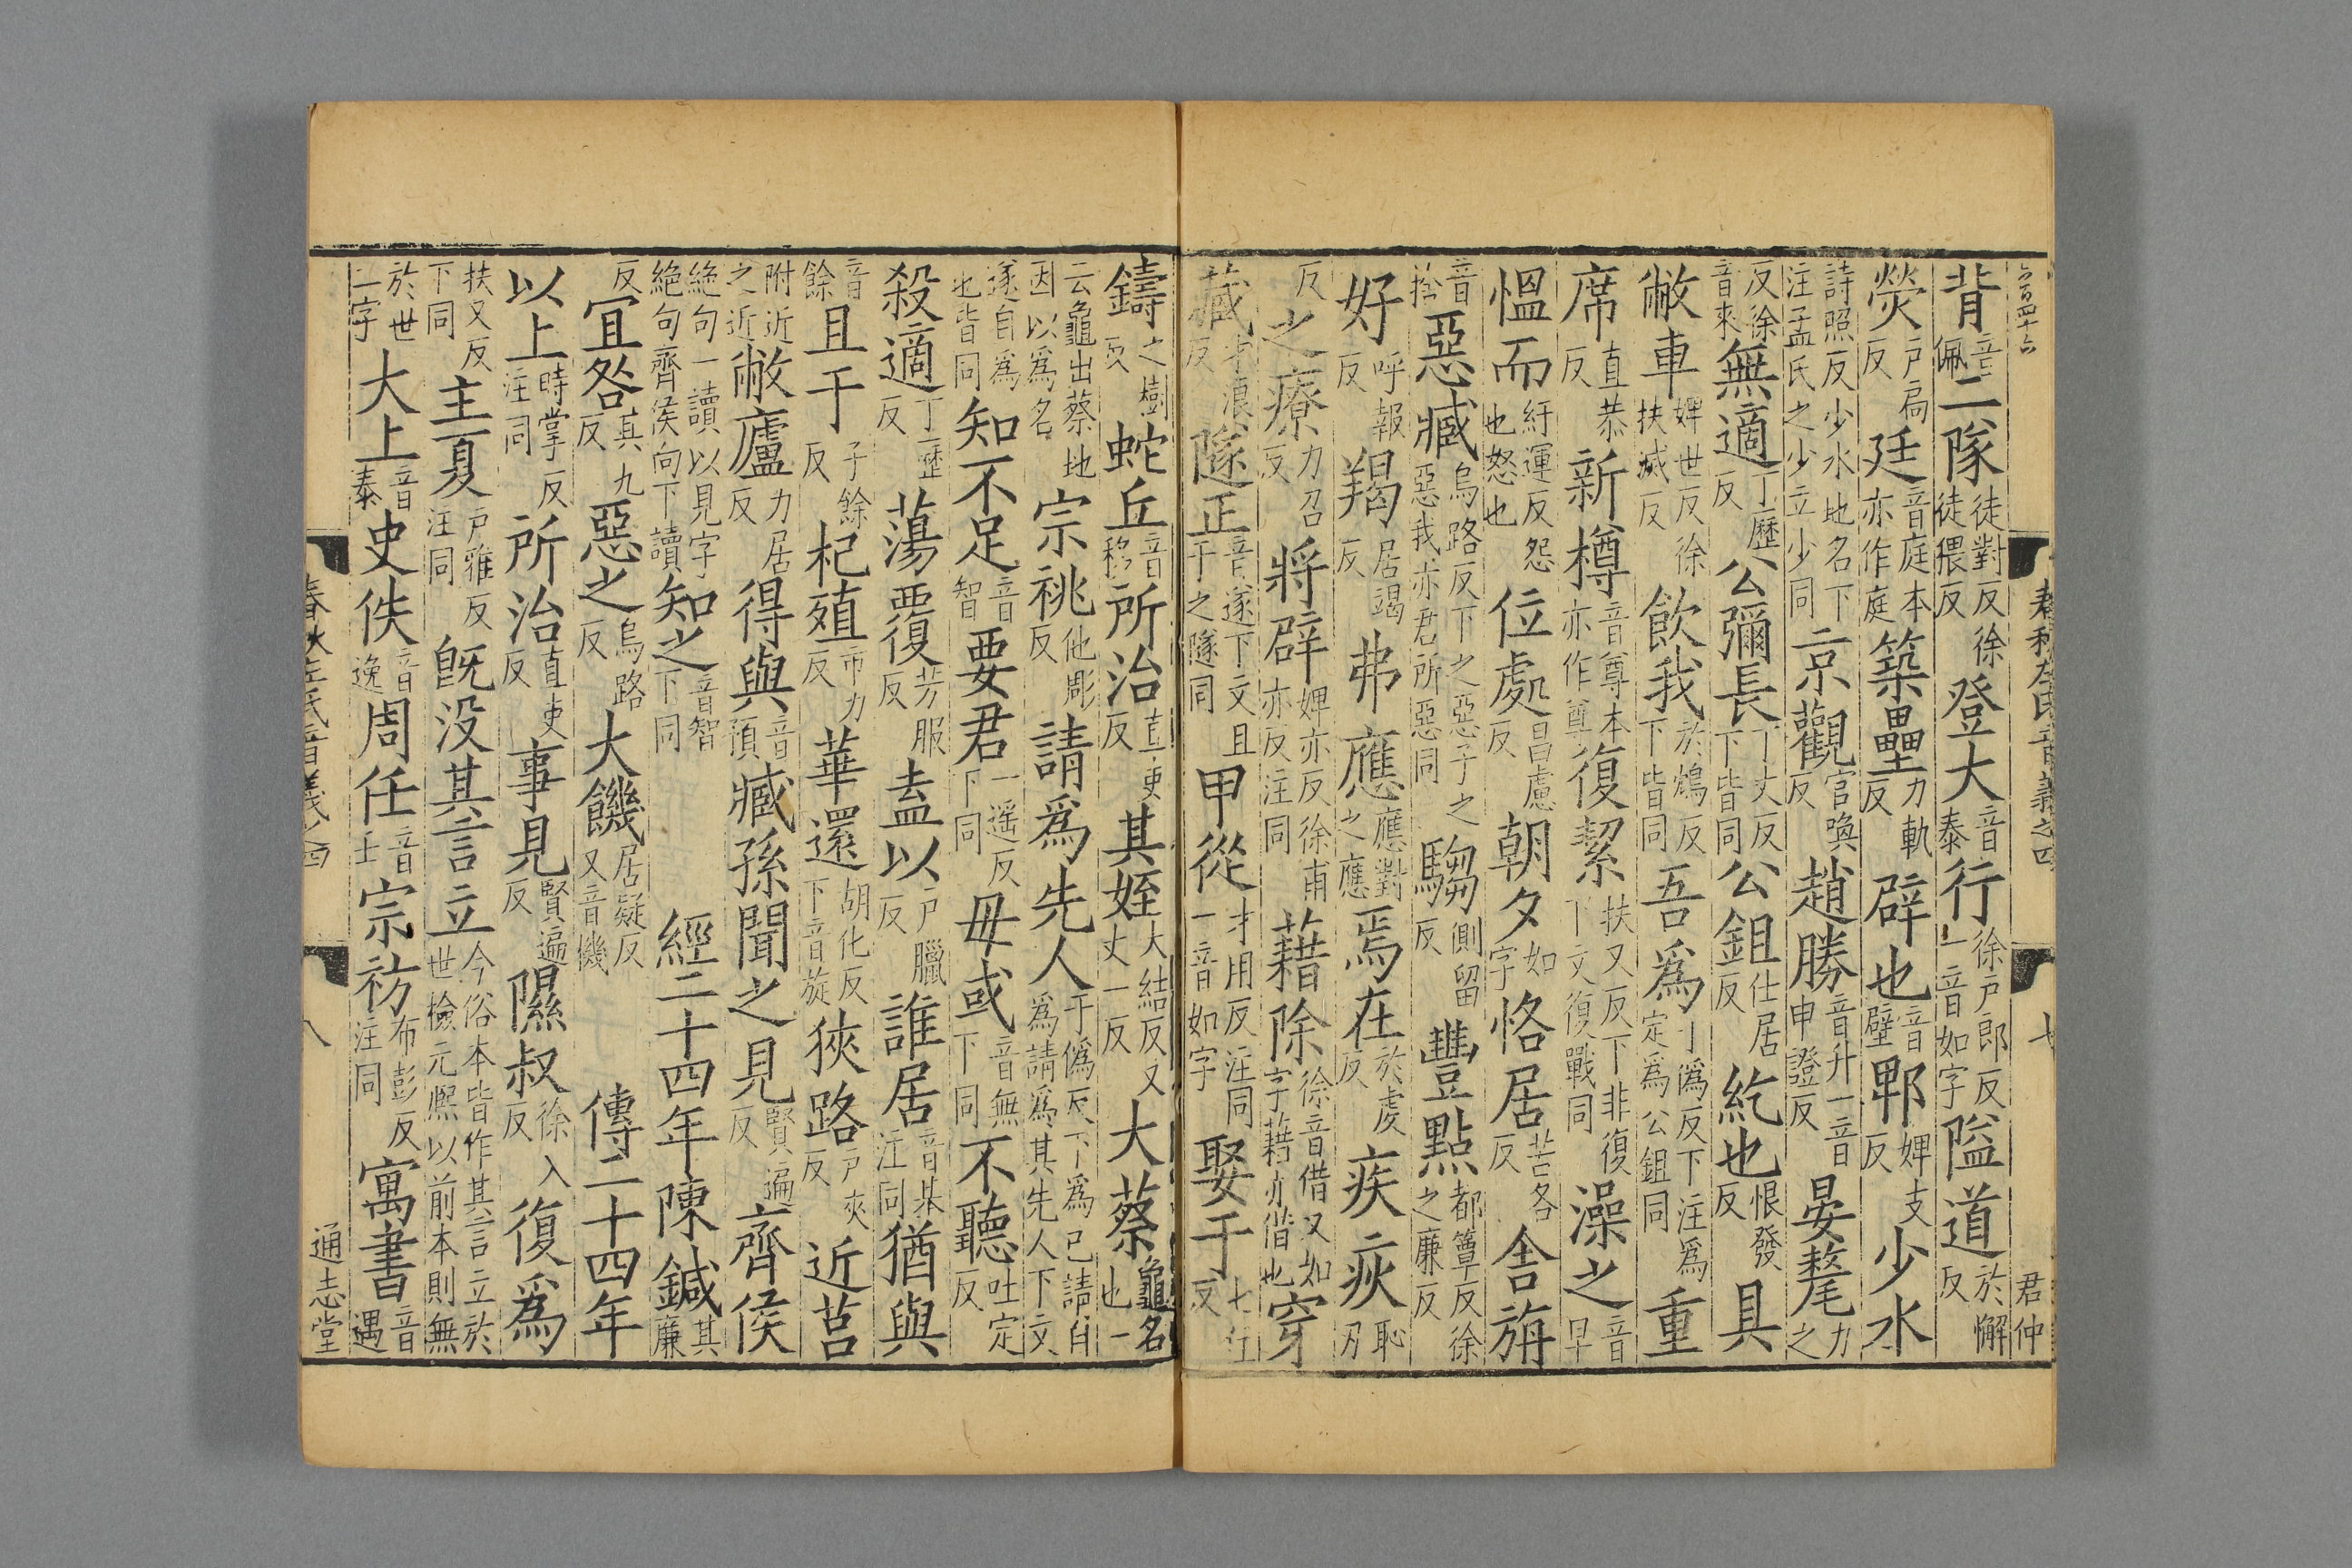 春秋左氏音義之四 七 君仲
背音佩二隊徒對反徐徒猥反登大音泰行徐户郎反一音如字隘道於懈反
熒户扃反廷音庭本亦作庭築壘力軌反辟也音壁郫婢支反少水
詩照反少水地名下注孟氏之少立少同京觀官喚反趙勝音升一音申證反晏氂力之
反徐音來無適丁歷反公彌長丁丈反下皆同公鉏仕居反紇也恨發反具
敝車婢世反徐扶滅反飲我於鴆反下皆同吾爲于僞反下注爲定爲公鉏同重
席直恭反新樽音尊本亦作尊復絜扶又反下非復下文復戰同澡之音早
愠而紆運反怨也怒也位處昌慮反朝夕如字恪居苦各反舍旃
音捨惡臧烏路反下之惡子之惡我亦君所惡同騶側留反豐點都簟反徐之廉反
好呼報反羯居謁反弗應應對之應焉在於虔反疾疢恥刃
反之療力召反將辟婢亦反徐甫亦反注同藉除徐音借又如字字藉亦借也穿
藏才浪反隧正音遂下文且于之隧同甲從才用反注同一音如字娶于七住反
鑄之樹反蛇丘音移所治直吏反其姪大結反又丈一反大蔡龜名也一
云龜出蔡地因以爲名宗祧他彫反請爲先人于僞反下爲已請自爲請爲其先人下文
遂自爲也皆同知不足音智要君一遥反下同毋或音無下同不聽吐定反
殺適丁歷反蕩覆芳服反盍以户臘反誰居音基注同猶與
音餘且于子餘反杞殖市力反華還胡化反下音旋狹路户夾反近莒
附近之近敝廬力居反得與音預臧孫聞之見賢遍反齊侯
絶句一讀以見字絶句齊侯向下讀知之音智下同經二十四年陳鍼其廉
反宜咎其九反惡之烏路反大饑居疑反又音機傳二十四年
以上時掌反注同所治直吏反事見賢遍反隰叔徐入反復爲
扶又反下同主夏户雅反注同旣没其言立今俗本皆作其言立於世檢元熙以前本則無
於世二字大上音泰史佚音逸周任音壬宗祊布彭反注同寓書音遇
春秋左氏音義之四 八 通志堂